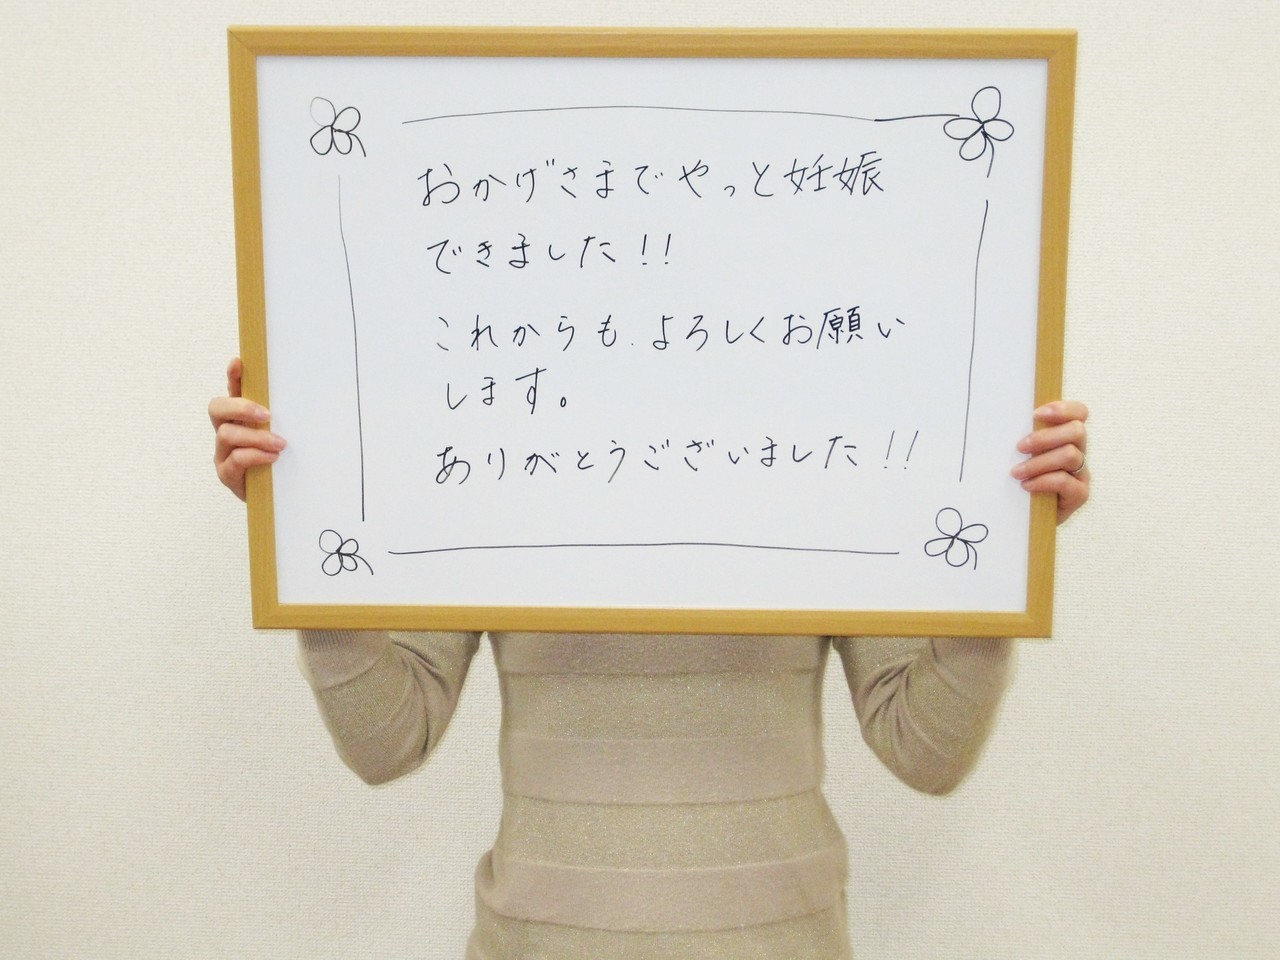 おかげさまでやっと妊娠
できました!!
これからも、よろしくお願い
します。
ありがとうございました!!